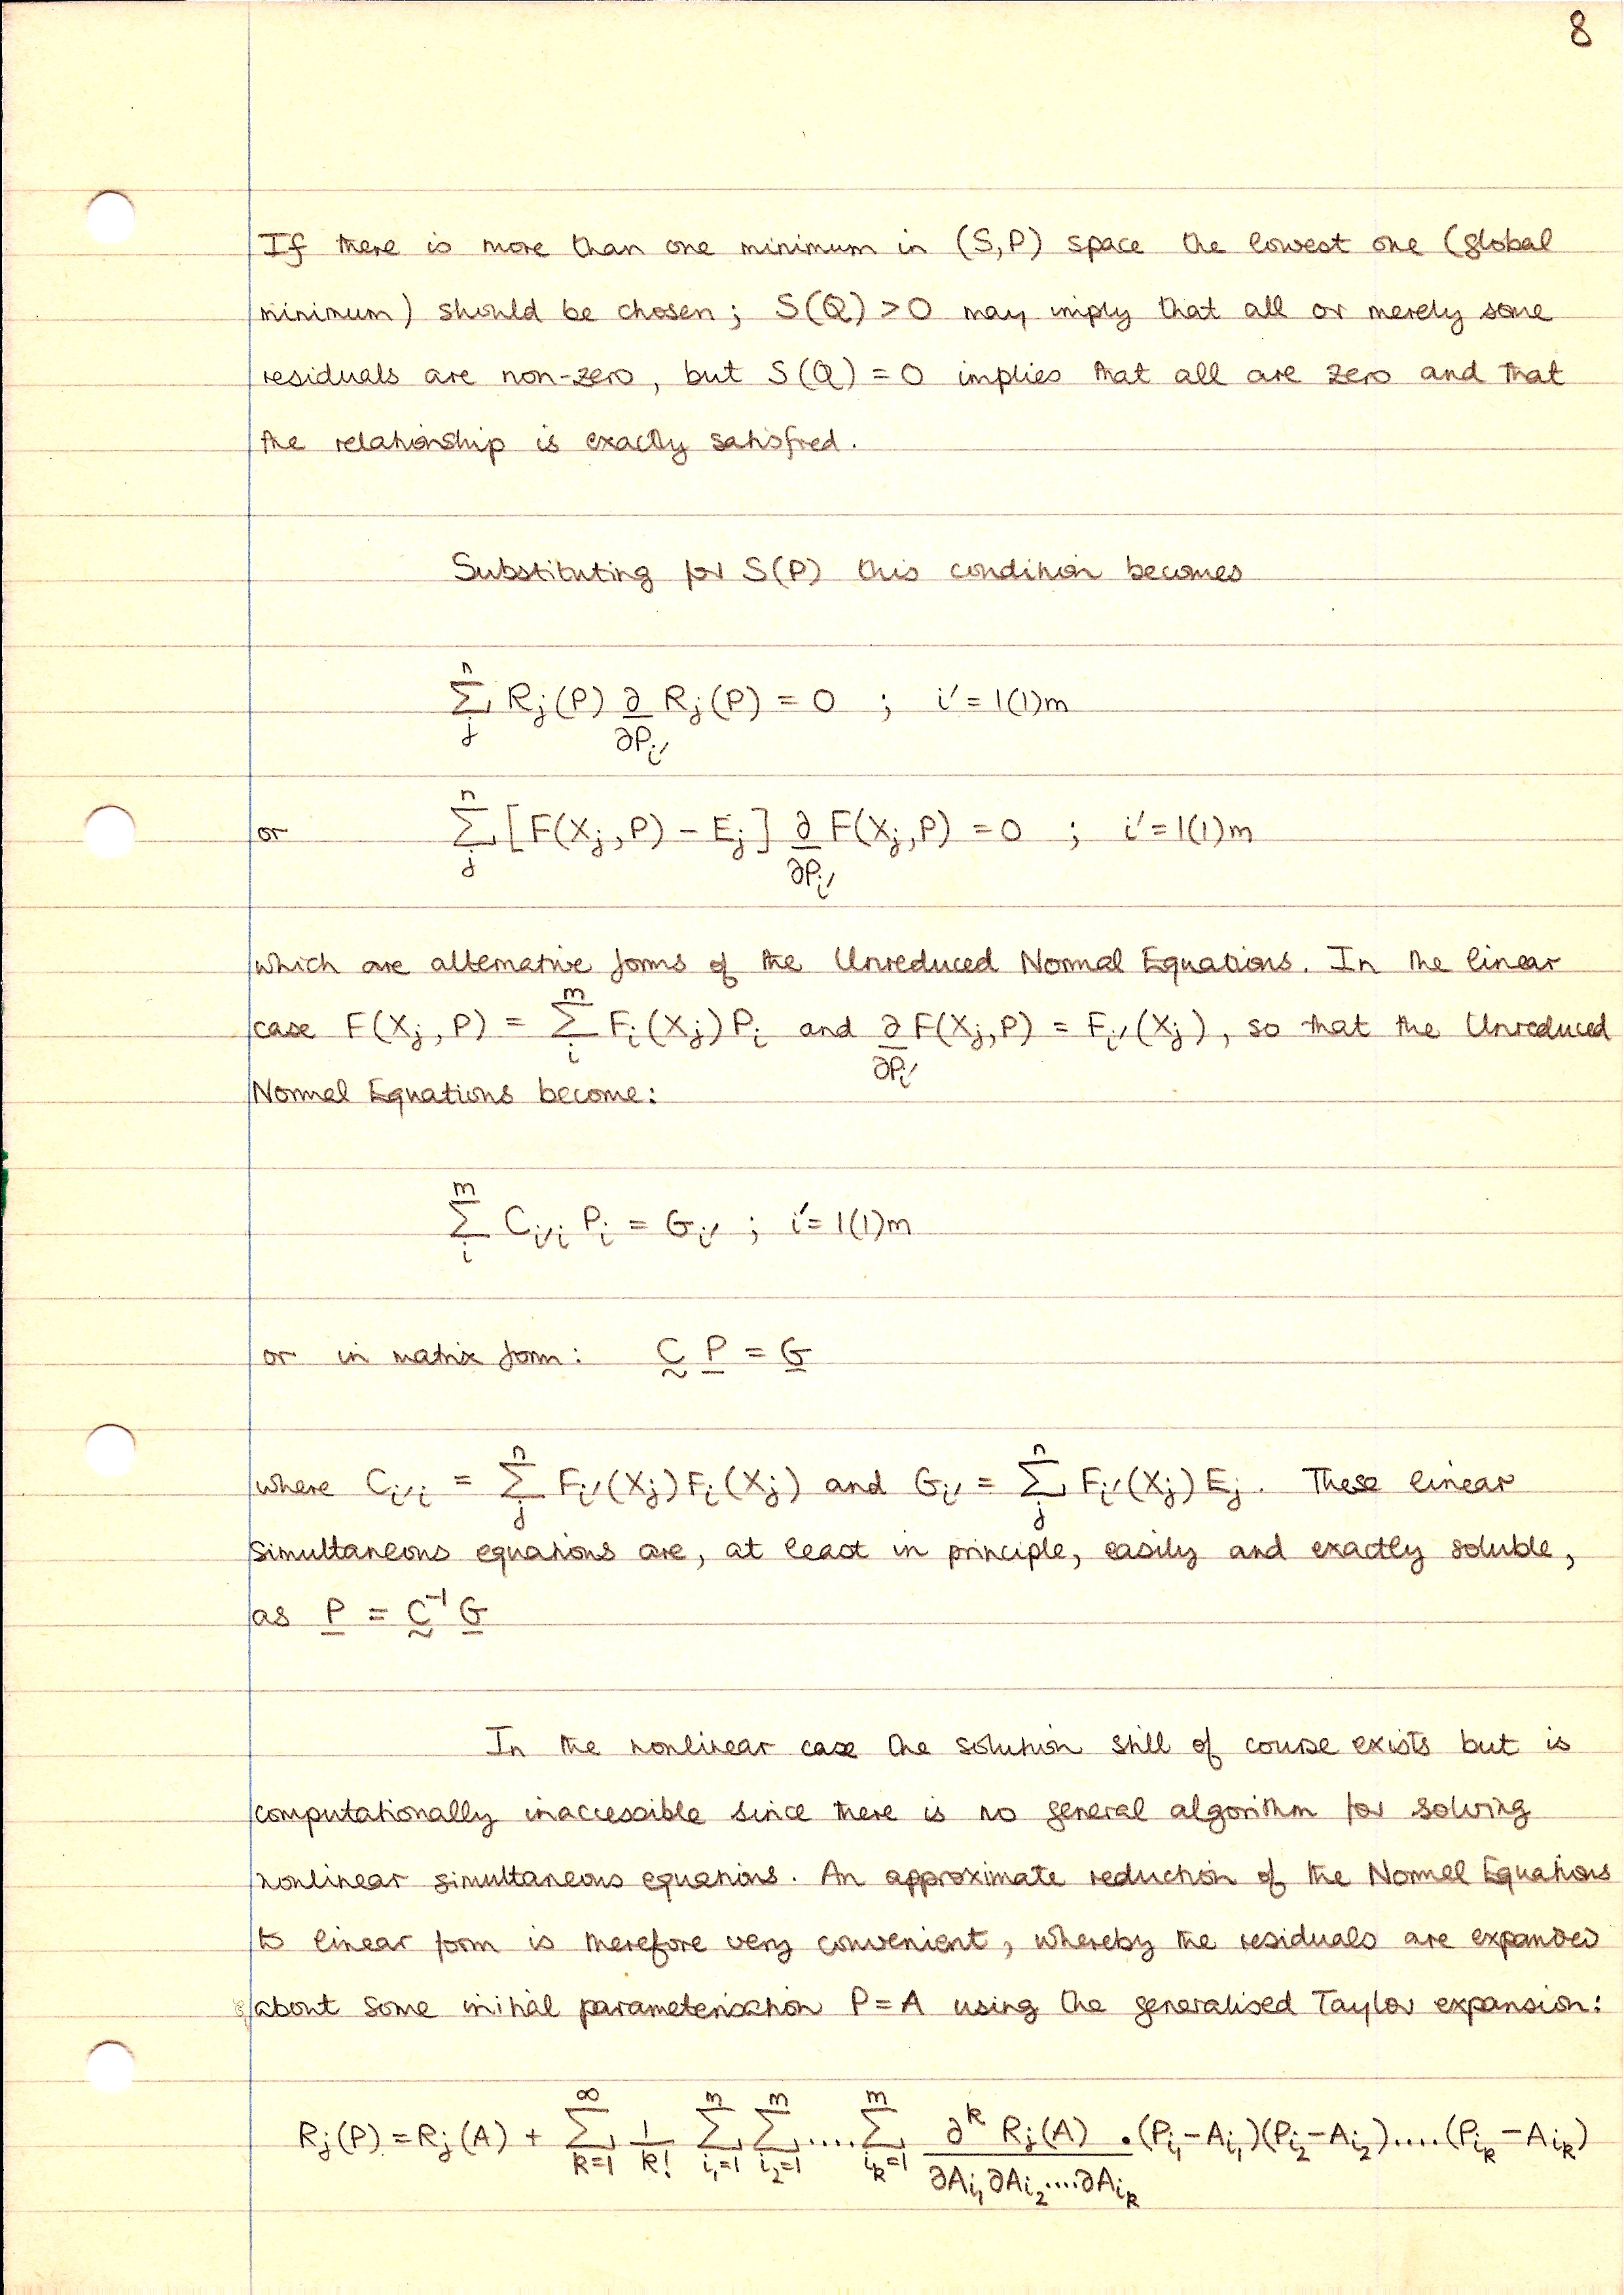 8
If there is more than one minimum in (S,P) space the lowest one (global
minimum) should be chosen; S(Q) > 0 may imply that all or merely some
residuals are non-zero, but S(Q) = 0 implies that all are zero and that
the relationship is exactly satisfied.
Substituting for S(P) this condition becomes
∑_j^n R_j(P) ∂/∂P_i' R_j(P) = 0 ; i' = 1(1)m
or ∑_j^n [F(X_j, P) − E_j] ∂/∂P_i' F(X_j, P) = 0 ; i' = 1(1)m
which are alternative forms of the Unreduced Normal Equations. In the linear
case F(X_j, P) = ∑_i^m F_i(X_j) P_i and ∂/∂P_i' F(X_j, P) = F_i'(X_j), so that the Unreduced
Normal Equations become:
∑_i^m C_i'i P_i = G_i' ; i' = 1(1)m
or in matrix form: C P = G
where C_i'i = ∑_j^n F_i'(X_j) F_i(X_j) and G_i' = ∑_j^n F_i'(X_j) E_j. These linear
simultaneous equations are, at least in principle, easily and exactly soluble,
as P = C^-1 G
In the nonlinear case the solution still of course exists but is
computationally inaccessible since there is no general algorithm for solving
nonlinear simultaneous equations. An approximate reduction of the Normal Equations
to linear form is therefore very convenient, whereby the residuals are expanded
about some initial parameterisation P = A using the generalised Taylor expansion:
R_j(P) = R_j(A) + ∑_{k=1}^∞ 1/k! ∑_{i_1=1}^m ∑_{i_2=1}^m .... ∑_{i_k=1}^m ∂^k R_j(A) / ∂A_{i_1} ∂A_{i_2} .... ∂A_{i_k} . (P_{i_1} − A_{i_1})(P_{i_2} − A_{i_2}) .... (P_{i_k} − A_{i_k})